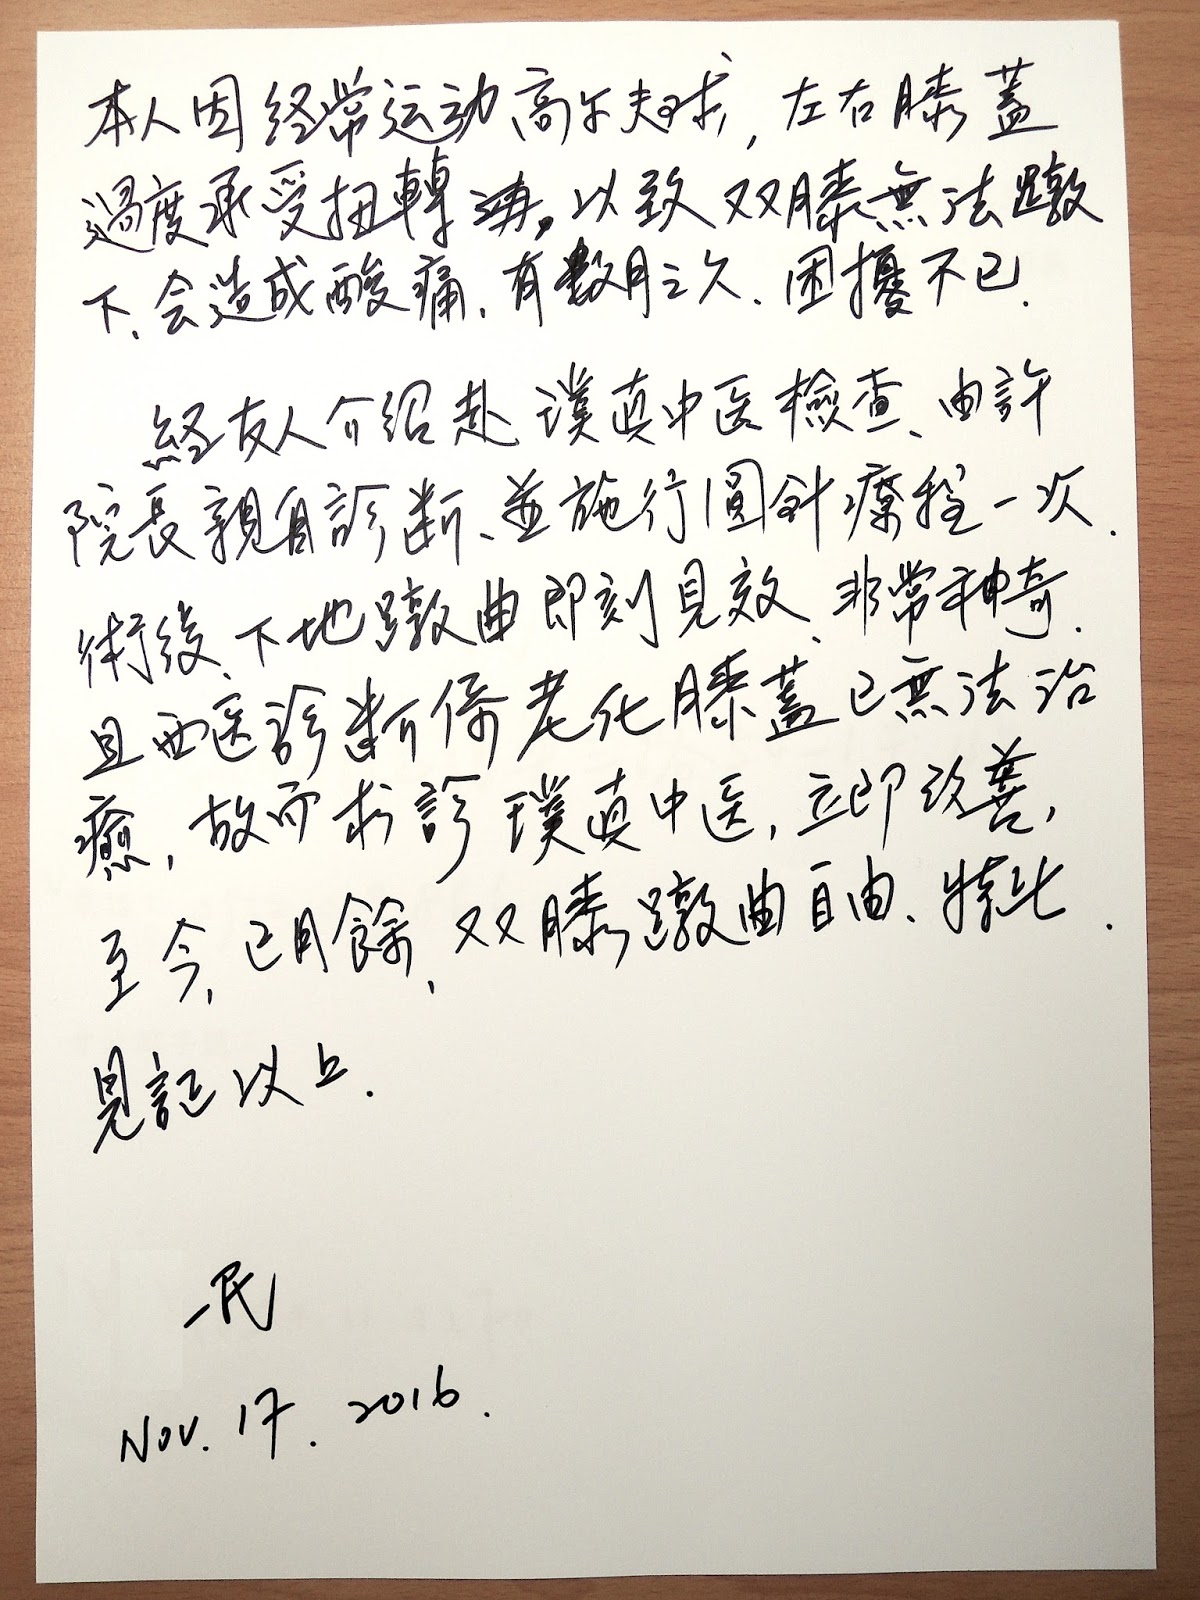 本人因経常运动高尔夫球，左右膝蓋
過度承受扭轉，以致双膝無法蹲
下、会造成酸痛、有数月之久、困擾不已.
経友人介绍赴璞真中医檢查、由許
院長親自診断、並施行圓針療程一次.
術後、下地蹲曲即刻見效、非常神奇.
且西医診断係老化膝蓋已無法治
癒，故而求診璞真中医，立即改善，
至今，已月餘，双膝蹲曲自由、特此.
見証以上.
一民
Nov. 17. 2016.